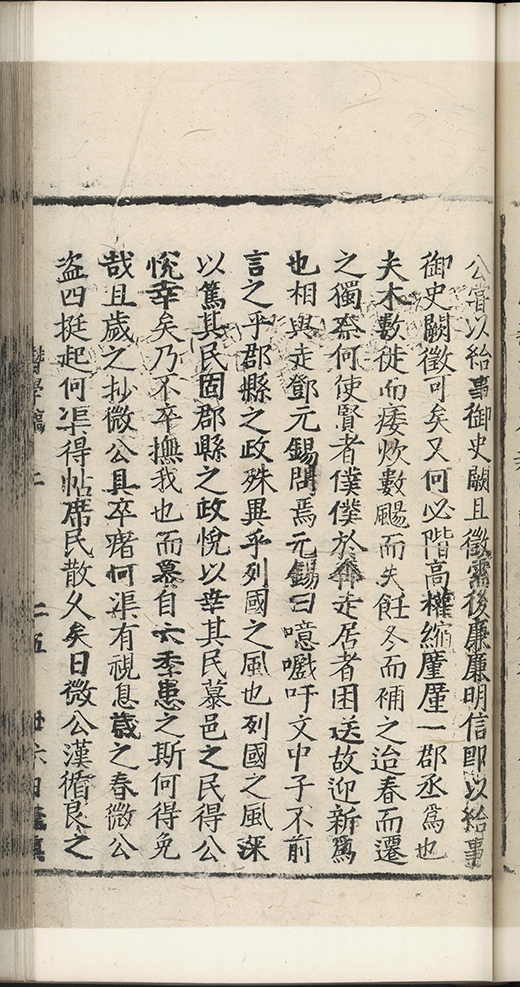 公嘗以給事御史闕且徵需後廉廉明信即以給事
御史闕徵可矣又何必階高權縮㕓㕓一郡丞爲也
夫木數徙而痿炊數颺而失飪冬而補之迨春而遷
之獨奈何使賢者僕僕於奔走居者困送故迎新爲
也相與走鄧元錫問焉元錫曰噫嚱吁文中子不前
言之乎郡縣之政殊異乎列國之風也列國之風深
以篤其民固郡縣之政悅以幸其民慕邑之民得公
悅幸矣乃不卒撫我也而慕自六季患之斯何得免
哉且歲之抄微公具卒瘏何渠有視息歲之春微公
盜四挺起何渠得帖席民散久矣日微公漢循良之
二五